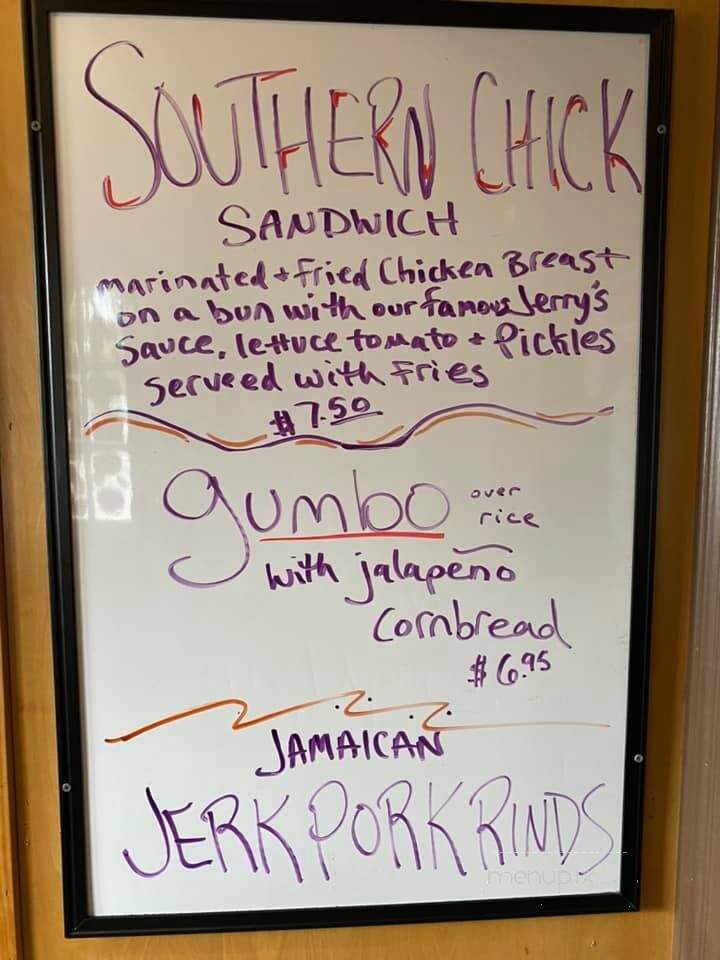 SOUTHERN CHICK
SANDWICH
marinated + Fried Chicken Breast
on a bun with our famous Jerry's
Sauce, lettuce tomato + Pickles
Serveed with Fries
$7.50
gumbo over
rice
with jalapeño
Cornbread
$6.95
JAMAICAN
JERK PORK RINDS
menupix